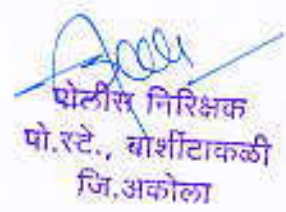 पोलीस निरिक्षक
पो.स्टे., बार्शीटाकळी
जि.अकोला